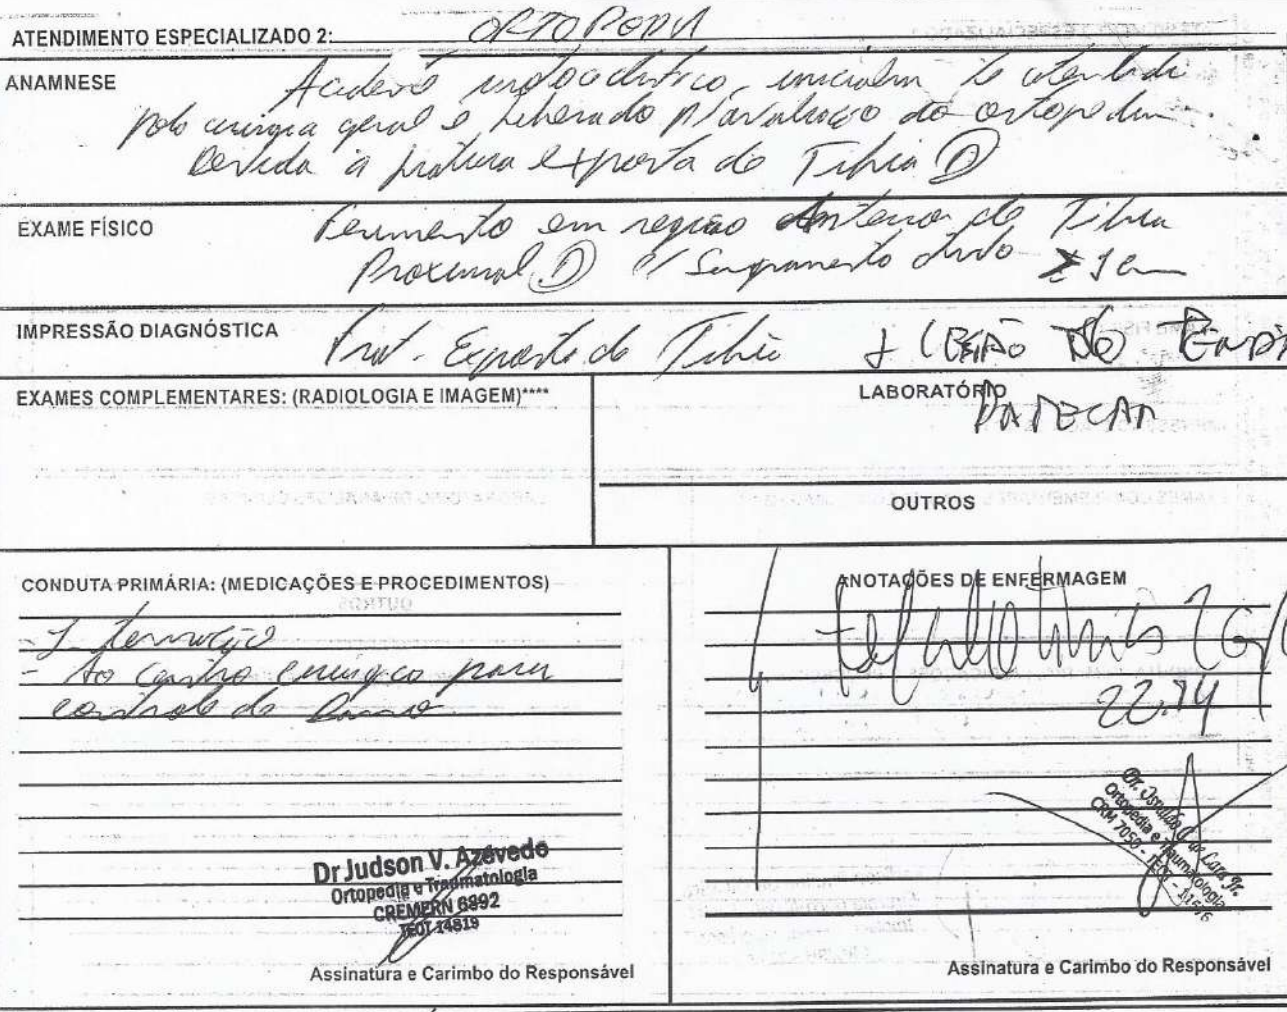 ATENDIMENTO ESPECIALIZADO 2: ORTOPEDIA
ANAMNESE
Acidente motociclístico, inicialm/te atendido
pela cirurgia geral e liberado p/ avaliação da ortopedia
devido a fratura exposta de Tíbia D
EXAME FÍSICO
Ferimento em região Anterior de Tíbia
Proximal D c/ Sangramento ± 1 cm
IMPRESSÃO DIAGNÓSTICA
Frat. Exposta de Tíbia + LESÃO DO
EXAMES COMPLEMENTARES: (RADIOLOGIA E IMAGEM)****
LABORATÓRIO
OUTROS
CONDUTA PRIMÁRIA: (MEDICAÇÕES E PROCEDIMENTOS)
- Internação
- Ao centro cirurgico para
controle de Dano
Dr Judson V. Azevedo
Ortopedia e Traumatologia
CREMERN 6892
TEOT 14819
Assinatura e Carimbo do Responsável
ANOTAÇÕES DE ENFERMAGEM
22.14
Ortopedia e Traumatologia
CRM 7050
Assinatura e Carimbo do Responsável